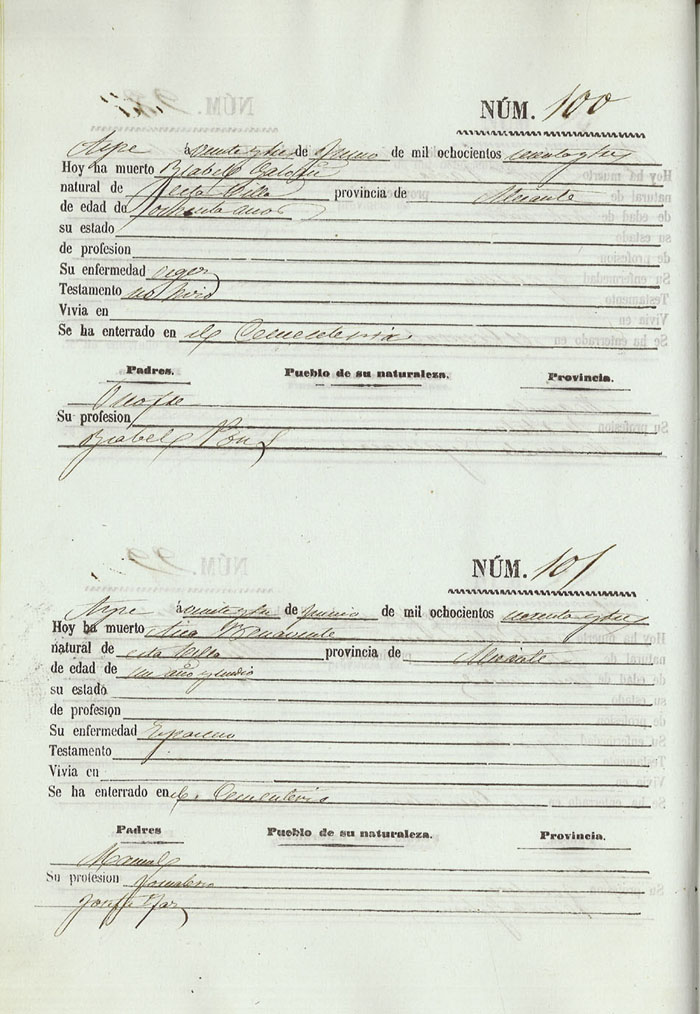 NÚM. 100
Aspe á veinte y tres de Junio de mil ochocientos cuarenta y tres
Hoy ha muerto Isabel
natural de esta Villa provincia de Alicante
de edad de años
su estado
de profesion
Su enfermedad vegez
Testamento no hizo
Vivia en
Se ha enterrado en el Cementerio
Padres. Pueblo de su naturaleza. Provincia.
Onofre
Su profesion
Isabel Pons
NÚM. 101
Aspe á veinte y tres de Junio de mil ochocientos cuarenta y tres
Hoy ha muerto Benavente
natural de esta Villa provincia de Alicante
de edad de un año y medio
su estado
de profesion
Su enfermedad
Testamento
Vivia en
Se ha enterrado en el Cementerio
Padres Pueblo de su naturaleza. Provincia.
Manuel
Su profesion Jornalero
Josefa